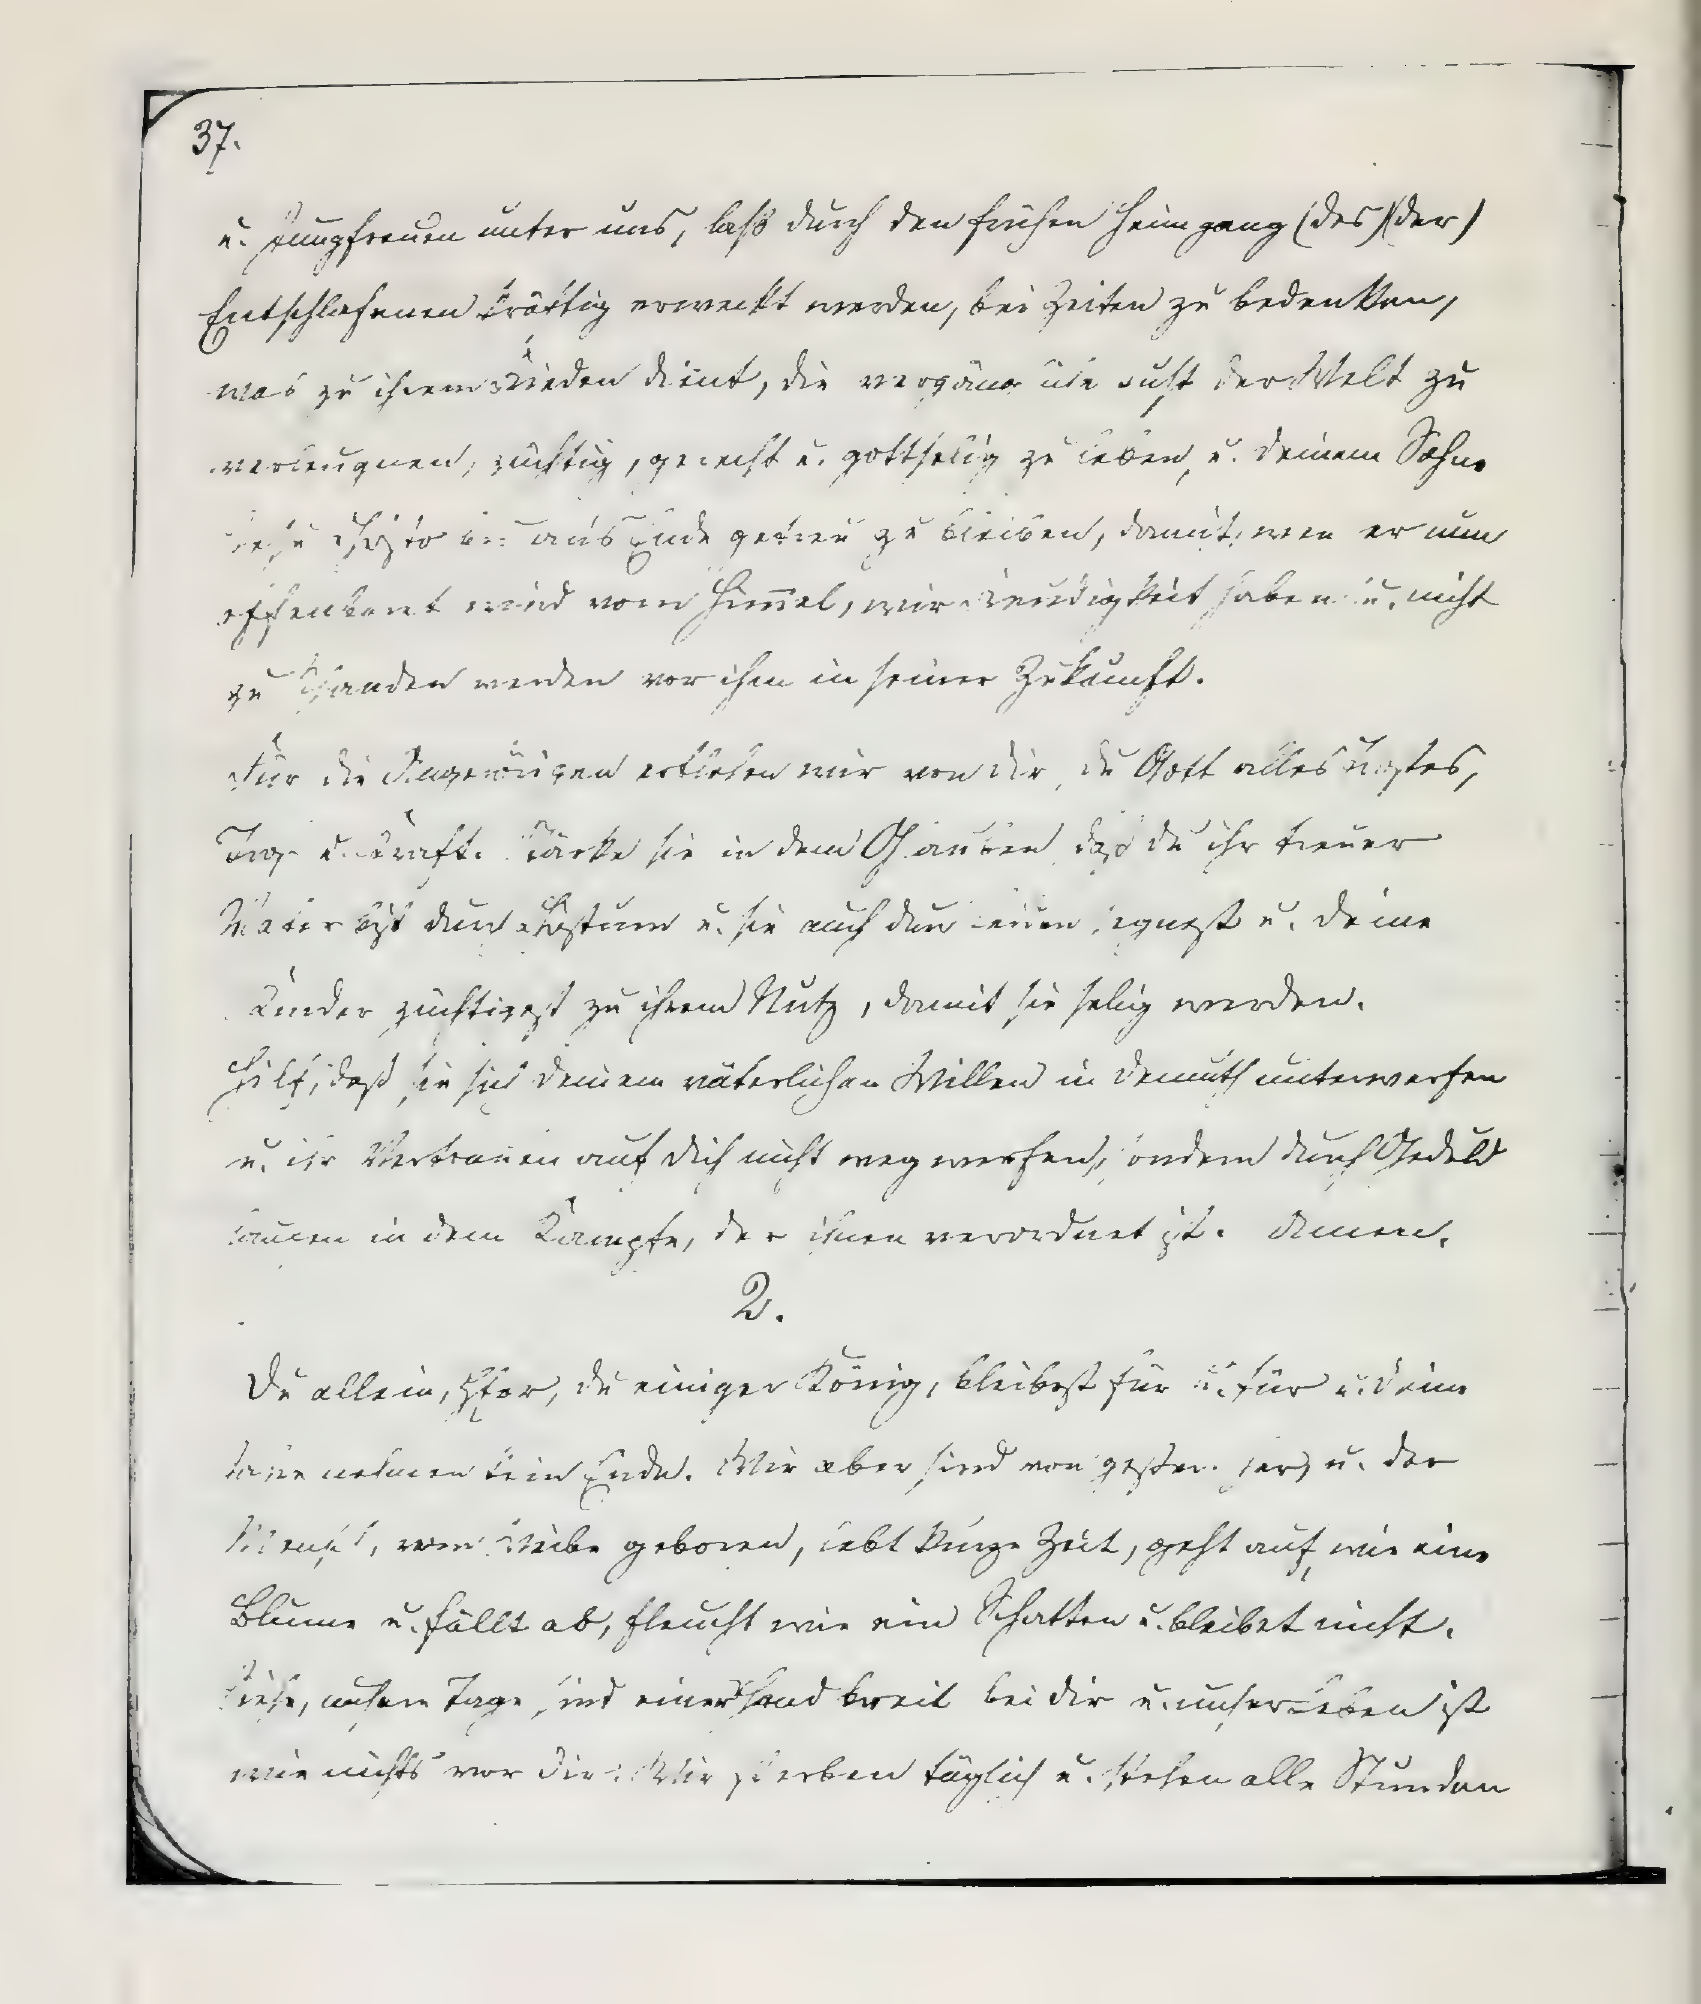 37.
u. Jungfrauen unter uns, laß durch den frühen Heimgang (des)(der)
Entschlafenen kräftig erweckt werden, bei Zeiten zu bedenken,
was zu ihrem Frieden dient, die vergängliche Lust der Welt zu
verleugnen, züchtig, gerecht u. gottselig zu leben, u. deinem Sohne
Jesu Christo bis ans Ende getreu zu bleiben, damit, wen er nun
offenbart wird vom Himel, wir Freudigkeit haben u. nicht
zu Schanden werden vor ihm in seiner Zukunft.
Für die Angehörigen erflehen wir von dir, du Gott alles Trostes,
Trost u. Kraft. Stärke sie in dem Glauben, daß du ihr treuer
Vater bist durch Christum u. sie auch durch Leiden segnest u. deine
Kinder züchtigest zu ihrem Nutz, damit sie selig werden.
Hilf, daß sie sich deinem väterlichen Willen in Demuth unterwerfen
u. ihr Vertrauen auf dich nicht wegwerfen, sondern durch Geduld
laufen in dem Kampfe, der ihnen verordnet ist. Amen.
2.
Du allein, Herr, du einiger König, bleibest für u. für u. deine
Jahre nehmen kein Ende. Wir aber sind von gestern her, u. der
Mensch, vom Weibe geboren, lebt kurze Zeit, geht auf wie eine
Blume u. fällt ab, fleucht wie ein Schatten u. bleibet nicht.
Siehe, unsere Tage sind einer Hand breit bei dir u. unser Leben ist
wie nichts vor dir. Wir sterben täglich u. stehen alle Stunden